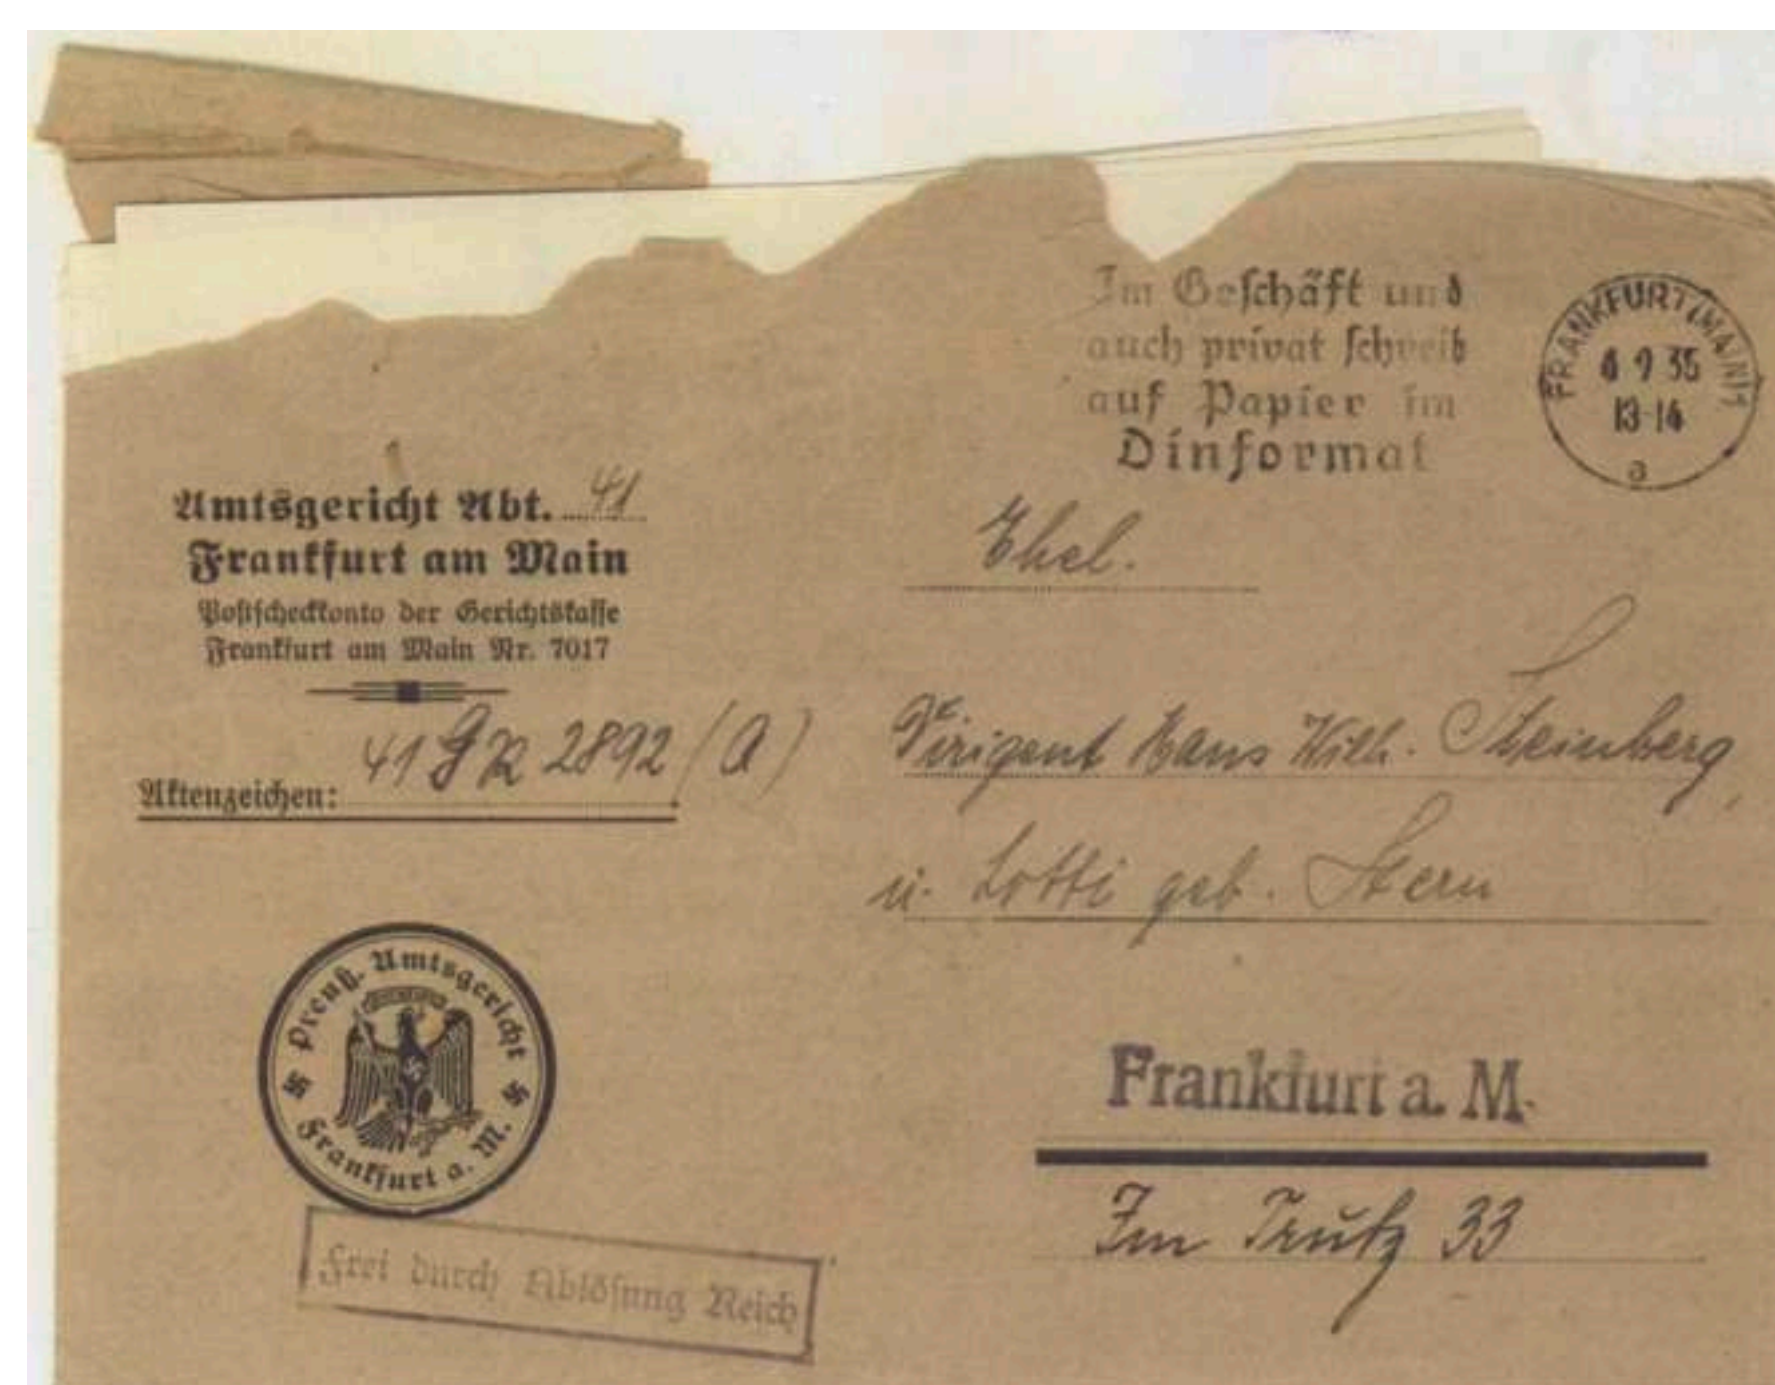 Im Geschäft und
auch privat schreib
auf Papier im
Dinformat
FRANKFURT (MAIN) 1
9 35
13-14
a
Amtsgericht Abt. 41
Frankfurt am Main
Postscheckkonto der Gerichtskasse
Frankfurt am Main Nr. 7017
Aktenzeichen: 41 GR 2892 (A)
Ehel.
Dirigent Hans Wilh. Steinberg,
u. Lotti geb. Stern
Frankfurt a. M.
Im Trutz 33
Preuß. Amtsgericht
Frankfurt a. M.
Frei durch Ablösung Reich